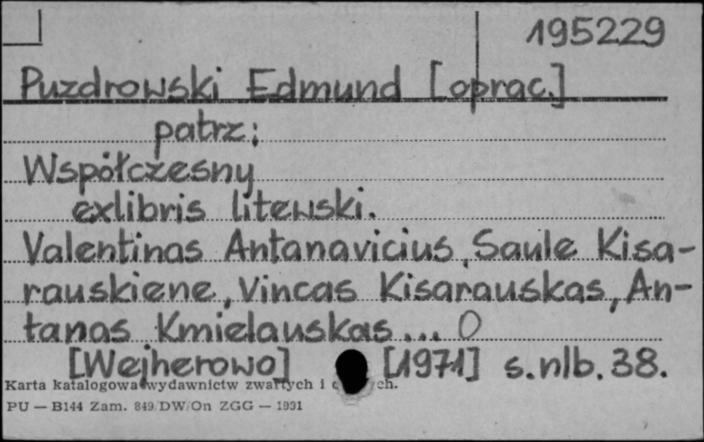 195229
Puzdrowski Edmund [oprac.]
patrz:
Współczesny
exlibris litewski.
Valentinas Antanavicius, Saule Kisa-
rauskiene, Vincas Kisarauskas, An-
tanas Kmielauskas... O
[Wejherowo] [1971] s.nlb. 38.
Karta katalogowa wydawnictw zwartych i ch.
PU — B144 Zam. 849/DW/On ZGG — 1931